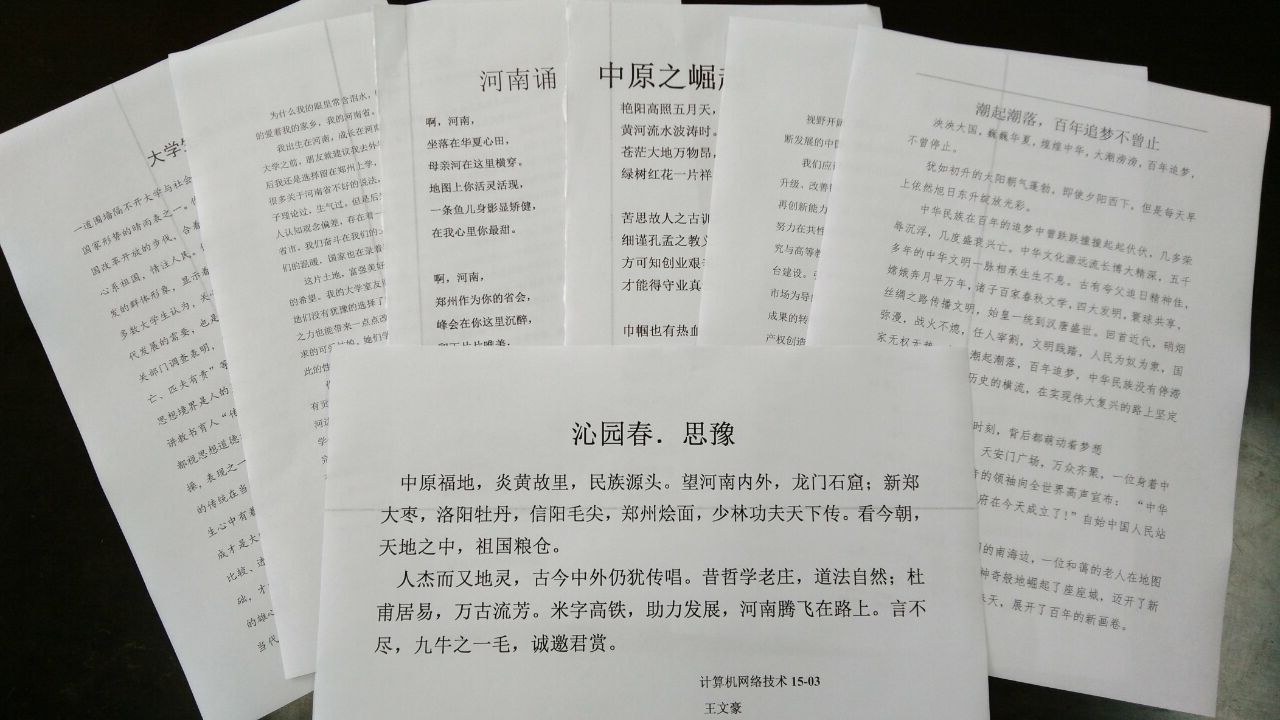 大学
一道围墙隔不开大学与社会
国家形势的晴雨表之一。
国改革开放的步伐，合着
心系祖国，情注人民，
发的群体形象，显示着
多数大学生认为，关心
代发展的需要，也是
关部门调查表明，
亡、匹夫有责”等
思想境界是人的
讲教书育人“传
都视思想道德
操，表现之一
的传统在当
生心中有着
成才是大
比较、选
础，才
的雄心
当代
为什么我的眼里常含泪水，
的爱着我的家乡，我的河南省。
我出生在河南，成长在河南
大学之前，朋友就建议我去外
后我还是选择留在郑州上学，
很多关于河南省不好的说法，
子理论过，生气过，但是后
人认知观念偏差，存在着一
省市。我们奋斗在我们的
们的泥暖，国家也在录着
这片土地，富强美好
的希望。我的大学室友
她们没有犹豫的选择了
之力也能带来一点点改
求的可
此的性
河南诵
啊，河南，
坐落在华夏心田，
母亲河在这里横穿。
地图上你活灵活现，
一条鱼儿身影显矫健，
在我心里你最甜。
啊，河南，
郑州作为你的省会，
峰会在你这里沉醉，
中原之崛起
艳阳高照五月天，
黄河流水波涛时。
苍茫大地万物昂，
绿树红花一片祥
苦思故人之古训
细谨孔孟之教义
方可知创业艰
才能得守业真
巾帼也有热血
视野开
断发展的中国
我们应
升级，改善
再创新能力
努力在共性
究与高等
台建设。
市场为导
成果的转
产权创造
潮起潮落，百年追梦不曾止
泱泱大国，巍巍华夏，煌煌中华，大潮涝涝，百年追梦，
不曾停止。
犹如初升的太阳朝气蓬勃，即使夕阳西下，但是每天早
上依然旭日东升绽放光彩。
中华民族在百年的追梦中曾跌跌撞撞起起伏伏，几多荣
辱沉浮，几度盛衰兴亡。中华文化源远流长博大精深，五千
多年的中华文明一脉相承生生不息。古有夸父追日精神佳，
嫦娥奔月早万年，诸子百家春秋文学，四大发明，寰球共享，
丝绸之路传播文明，始皇一统到汉唐盛世。回首近代，硝烟
弥漫，战火不熄，任人宰割，文明践踏，人民为奴为隶，国
家无权无
潮起潮落，百年追梦，中华民族没有停滞
历史的横流，在实现伟大复兴的路上坚定
时刻，背后都萌动着梦想
天安门广场，万众齐聚，一位身着中
的领袖向全世界高声宣布：“中华
府在今天成立了！”自始中国人民站
的南海边，一位和蔼的老人在地图
神奇般地崛起了座座城，迈开了新
天，展开了百年的新画卷。
沁园春．思豫
中原福地，炎黄故里，民族源头。望河南内外，龙门石窟；新郑
大枣，洛阳牡丹，信阳毛尖，郑州烩面，少林功夫天下传。看今朝，
天地之中，祖国粮仓。
人杰而又地灵，古今中外仍犹传唱。昔哲学老庄，道法自然；杜
甫居易，万古流芳。米字高铁，助力发展，河南腾飞在路上。言不
尽，九牛之一毛，诚邀君赏。
计算机网络技术 15-03
王文豪